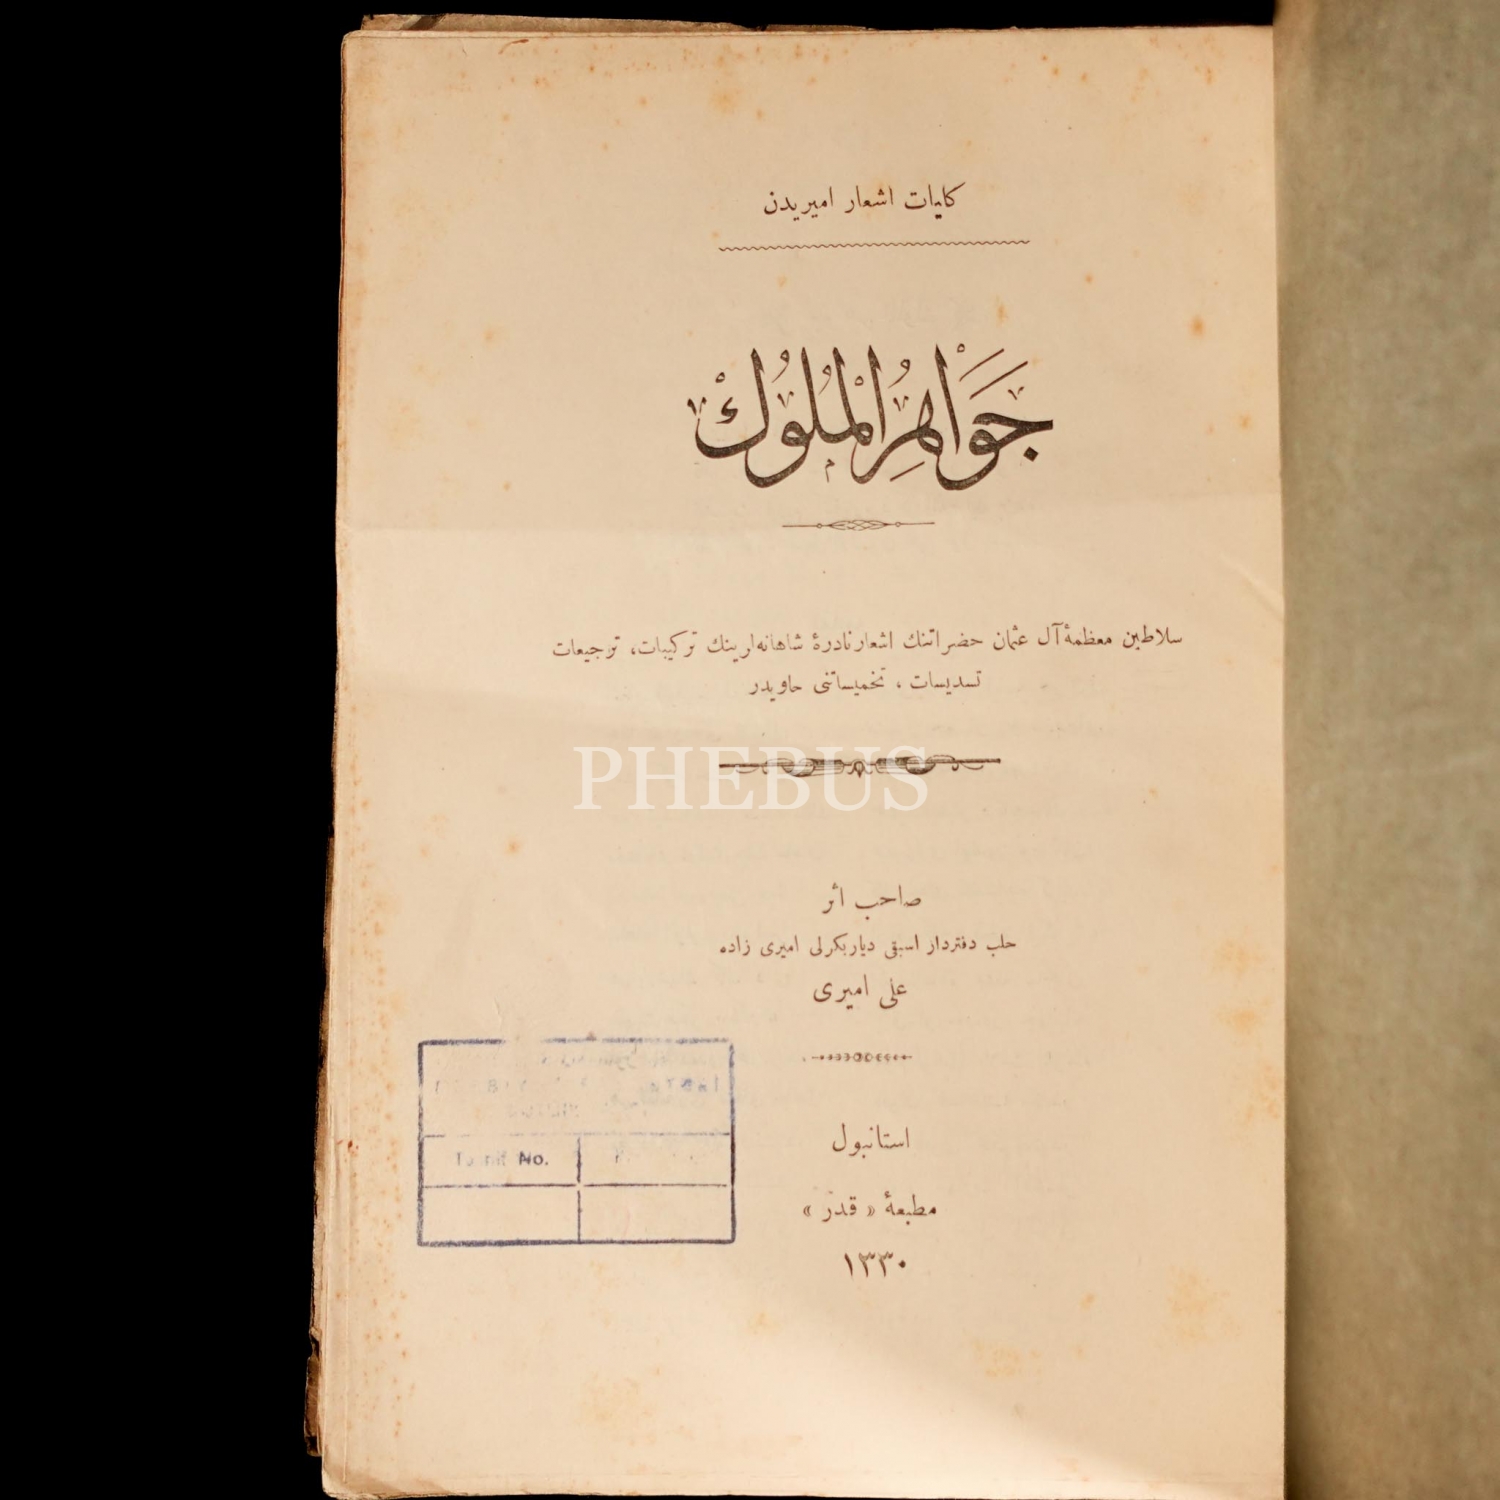 كليات اشعار اميريدن
جَوَاهِرُ الْمُلُوكْ
سلاطين معظمهٔ آل عثمان حضراتنك اشعار نادرهٔ شاهانه لرينك تركيبات، ترجيعات
تسديسات ، تخميساتنى حاويدر
PHEBUS
صاحب اثر
حلب دفتردار اسبقى دياربكرلى اميرى زاده
على اميرى
No.
استانبول
مطبعهٔ « قدر »
١٣٣٠